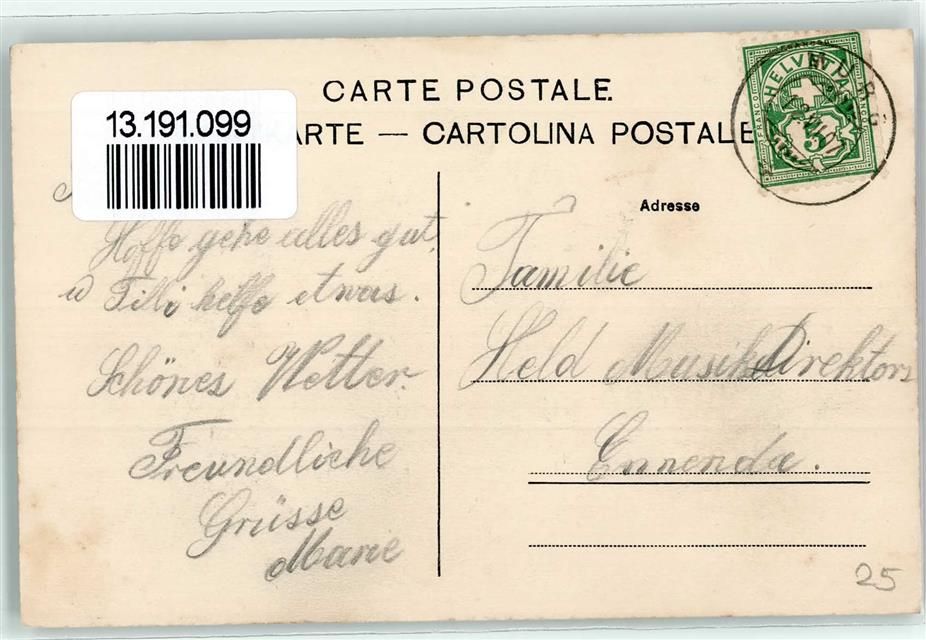 CARTE POSTALE.
ARTE — CARTOLINA POSTALE
13.191.099
HELVETIA
FRANCO
FRANCO
5
Adresse
Hoffe gehe alles gut,
u Tilli helfe etwas.
Schönes Wetter.
Freundliche
Grüsse
Marie
Familie
Held Musik Direktors
Ennenda.
25